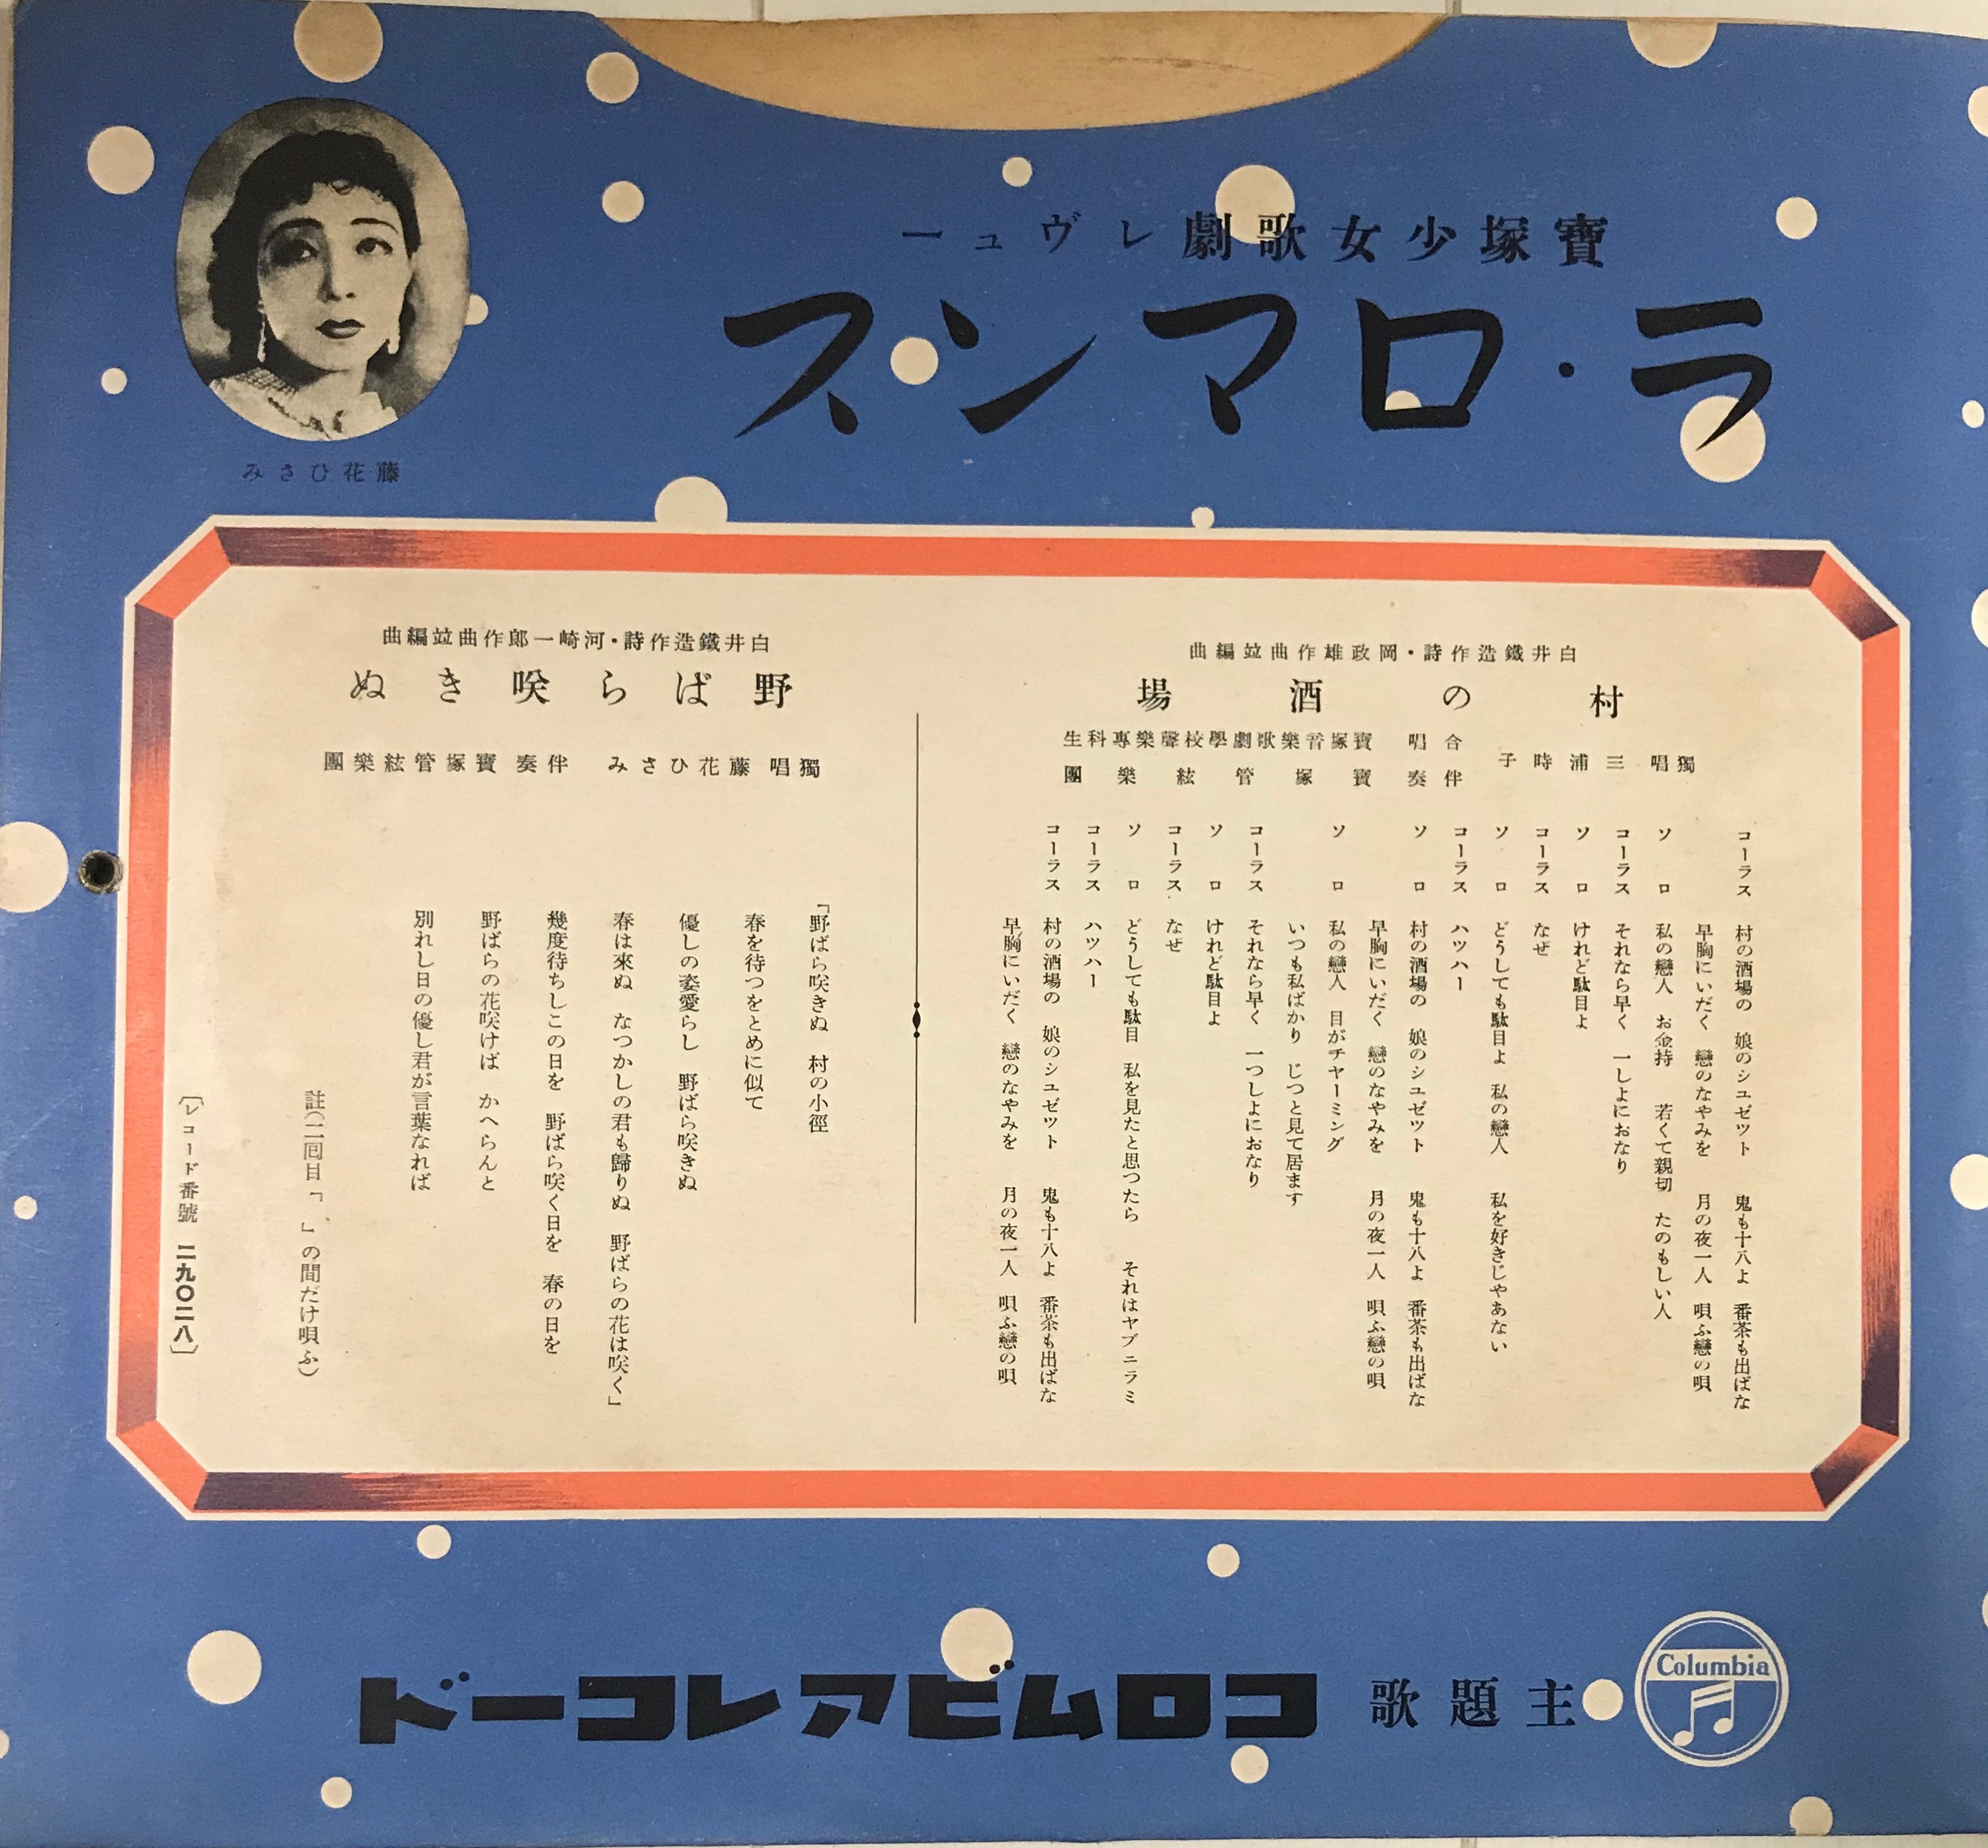 寶塚少女歌劇レヴュー
ラ・ロマンス
藤花ひさみ
白井鐵造作詩・岡政雄作曲竝編曲
村の酒場
獨唱 三浦時子
合唱 寶塚音樂歌劇學校聲樂專科生
伴奏 寶塚管絃樂團
コーラス 村の酒場の 娘のシユゼツト 鬼も十八よ 番茶も出ばな
早胸にいだく 戀のなやみを 月の夜一人 唄ふ戀の唄
ソロ 私の戀人 お金持 若くて親切 たのもしい人
コーラス それなら早く 一しよにおなり
ソロ けれど駄目よ
コーラス なぜ
ソロ どうしても駄目よ 私の戀人 私を好きじやあない
コーラス ハツハー
ソロ 村の酒場の 娘のシユゼツト 鬼も十八よ 番茶も出ばな
早胸にいだく 戀のなやみを 月の夜一人 唄ふ戀の唄
ソロ 私の戀人 目がチヤーミング
いつも私ばかり じつと見て居ます
コーラス それなら早く 一つしよにおなり
ソロ けれど駄目よ
コーラス なぜ
ソロ どうしても駄目 私を見たと思つたら それはヤブニラミ
コーラス ハツハー
コーラス 村の酒場の 娘のシユゼツト 鬼も十八よ 番茶も出ばな
早胸にいだく 戀のなやみを 月の夜一人 唄ふ戀の唄
白井鐵造作詩・河崎一郎作曲竝編曲
野ばら咲きぬ
獨唱 藤花ひさみ 伴奏 寶塚管絃樂團
「野ばら咲きぬ 村の小徑
春を待つをとめに似て
優しの姿愛らし 野ばら咲きぬ
春は來ぬ なつかしの君も歸りぬ 野ばらの花は咲く」
幾度待ちしこの日を 野ばら咲く日を 春の日を
野ばらの花咲けば かへらんと
別れし日の優し君が言葉なれば
註(二囘目「 」の間だけ唄ふ)
〔レコード番號 二九〇二八〕
Columbia
主題歌 コロムビアレコード